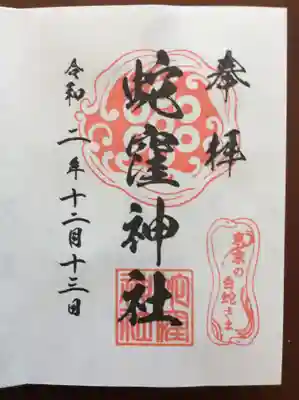 奉拝
蛇窪神社
令和二年十二月十三日
東京の
白蛇さま
蛇窪
神社